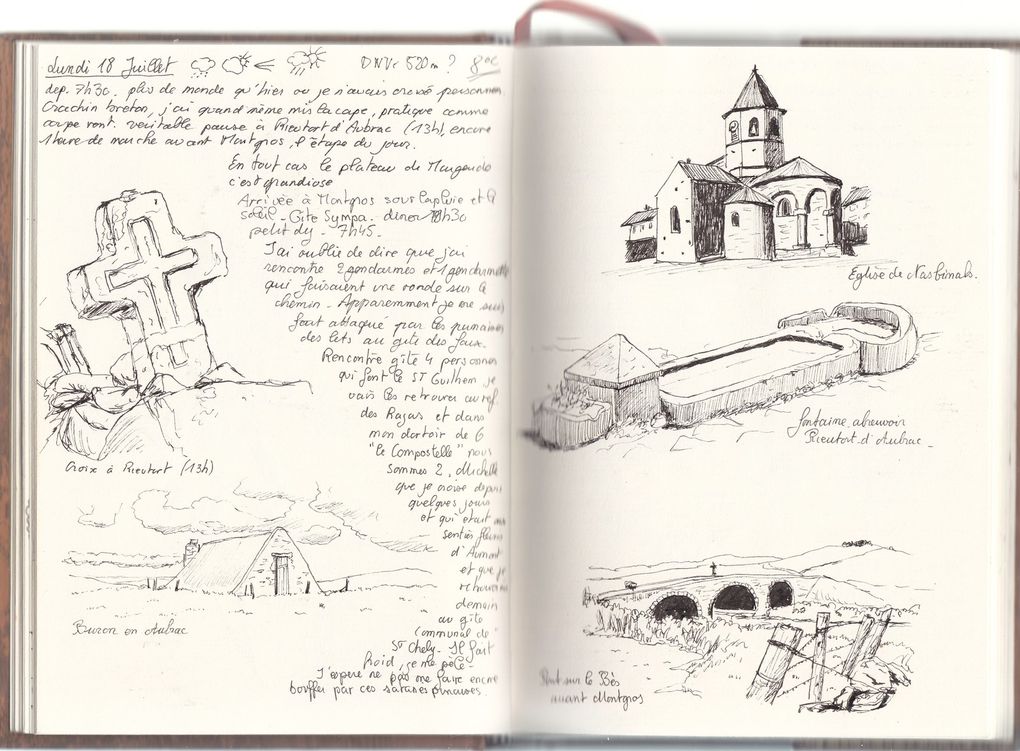 Lundi 18 Juillet DNV: 520m ? 8°C
dep. 7h30. plus de monde qu'hier ou je n'avais croisé personne.
Crachin breton, j'ai quand même mis la cape, pratique comme
coupe vent. veritable pause à Rieutort d'Aubrac (13h), encore
1 heure de marche avant Montgros, l'étape du jour.
En tout cas le plateau de
c'est grandiose
Arrivée à Montgros sous la pluie et le
soleil - Gîte Sympa. diner 18h30
petit dej - 7h45.
J'ai oublié de dire que j'ai
rencontré 2 gendarmes et 1 gendarmette
qui faisaient une ronde sur le
chemin - Apparemment je me suis
fait attaqué par les punaises
des lits au gîte des faux.
Rencontre gîte 4 personnes
qui font le ST Guilhem je
vais les retrouver au ref.
des Rajas et dans
mon dortoir de 6
"le Compostelle" nous
sommes 2, Michelle
que je croise depuis
quelques jours
et qui était aux
sentiers fleuris
d'Aumont
et que je
retrouverai
demain
au gîte
Communal de
St Chely - Il fait
froid, je me pèle -
J'espère ne pas me faire encore
bouffer par ces satanées punaises.
Croix à Rieutort (13h)
Buron en Aubrac
Eglise de Nasbinals.
fontaine abreuvoir
Rieutort d'Aubrac -
Pont sur le Bès
avant Montgros